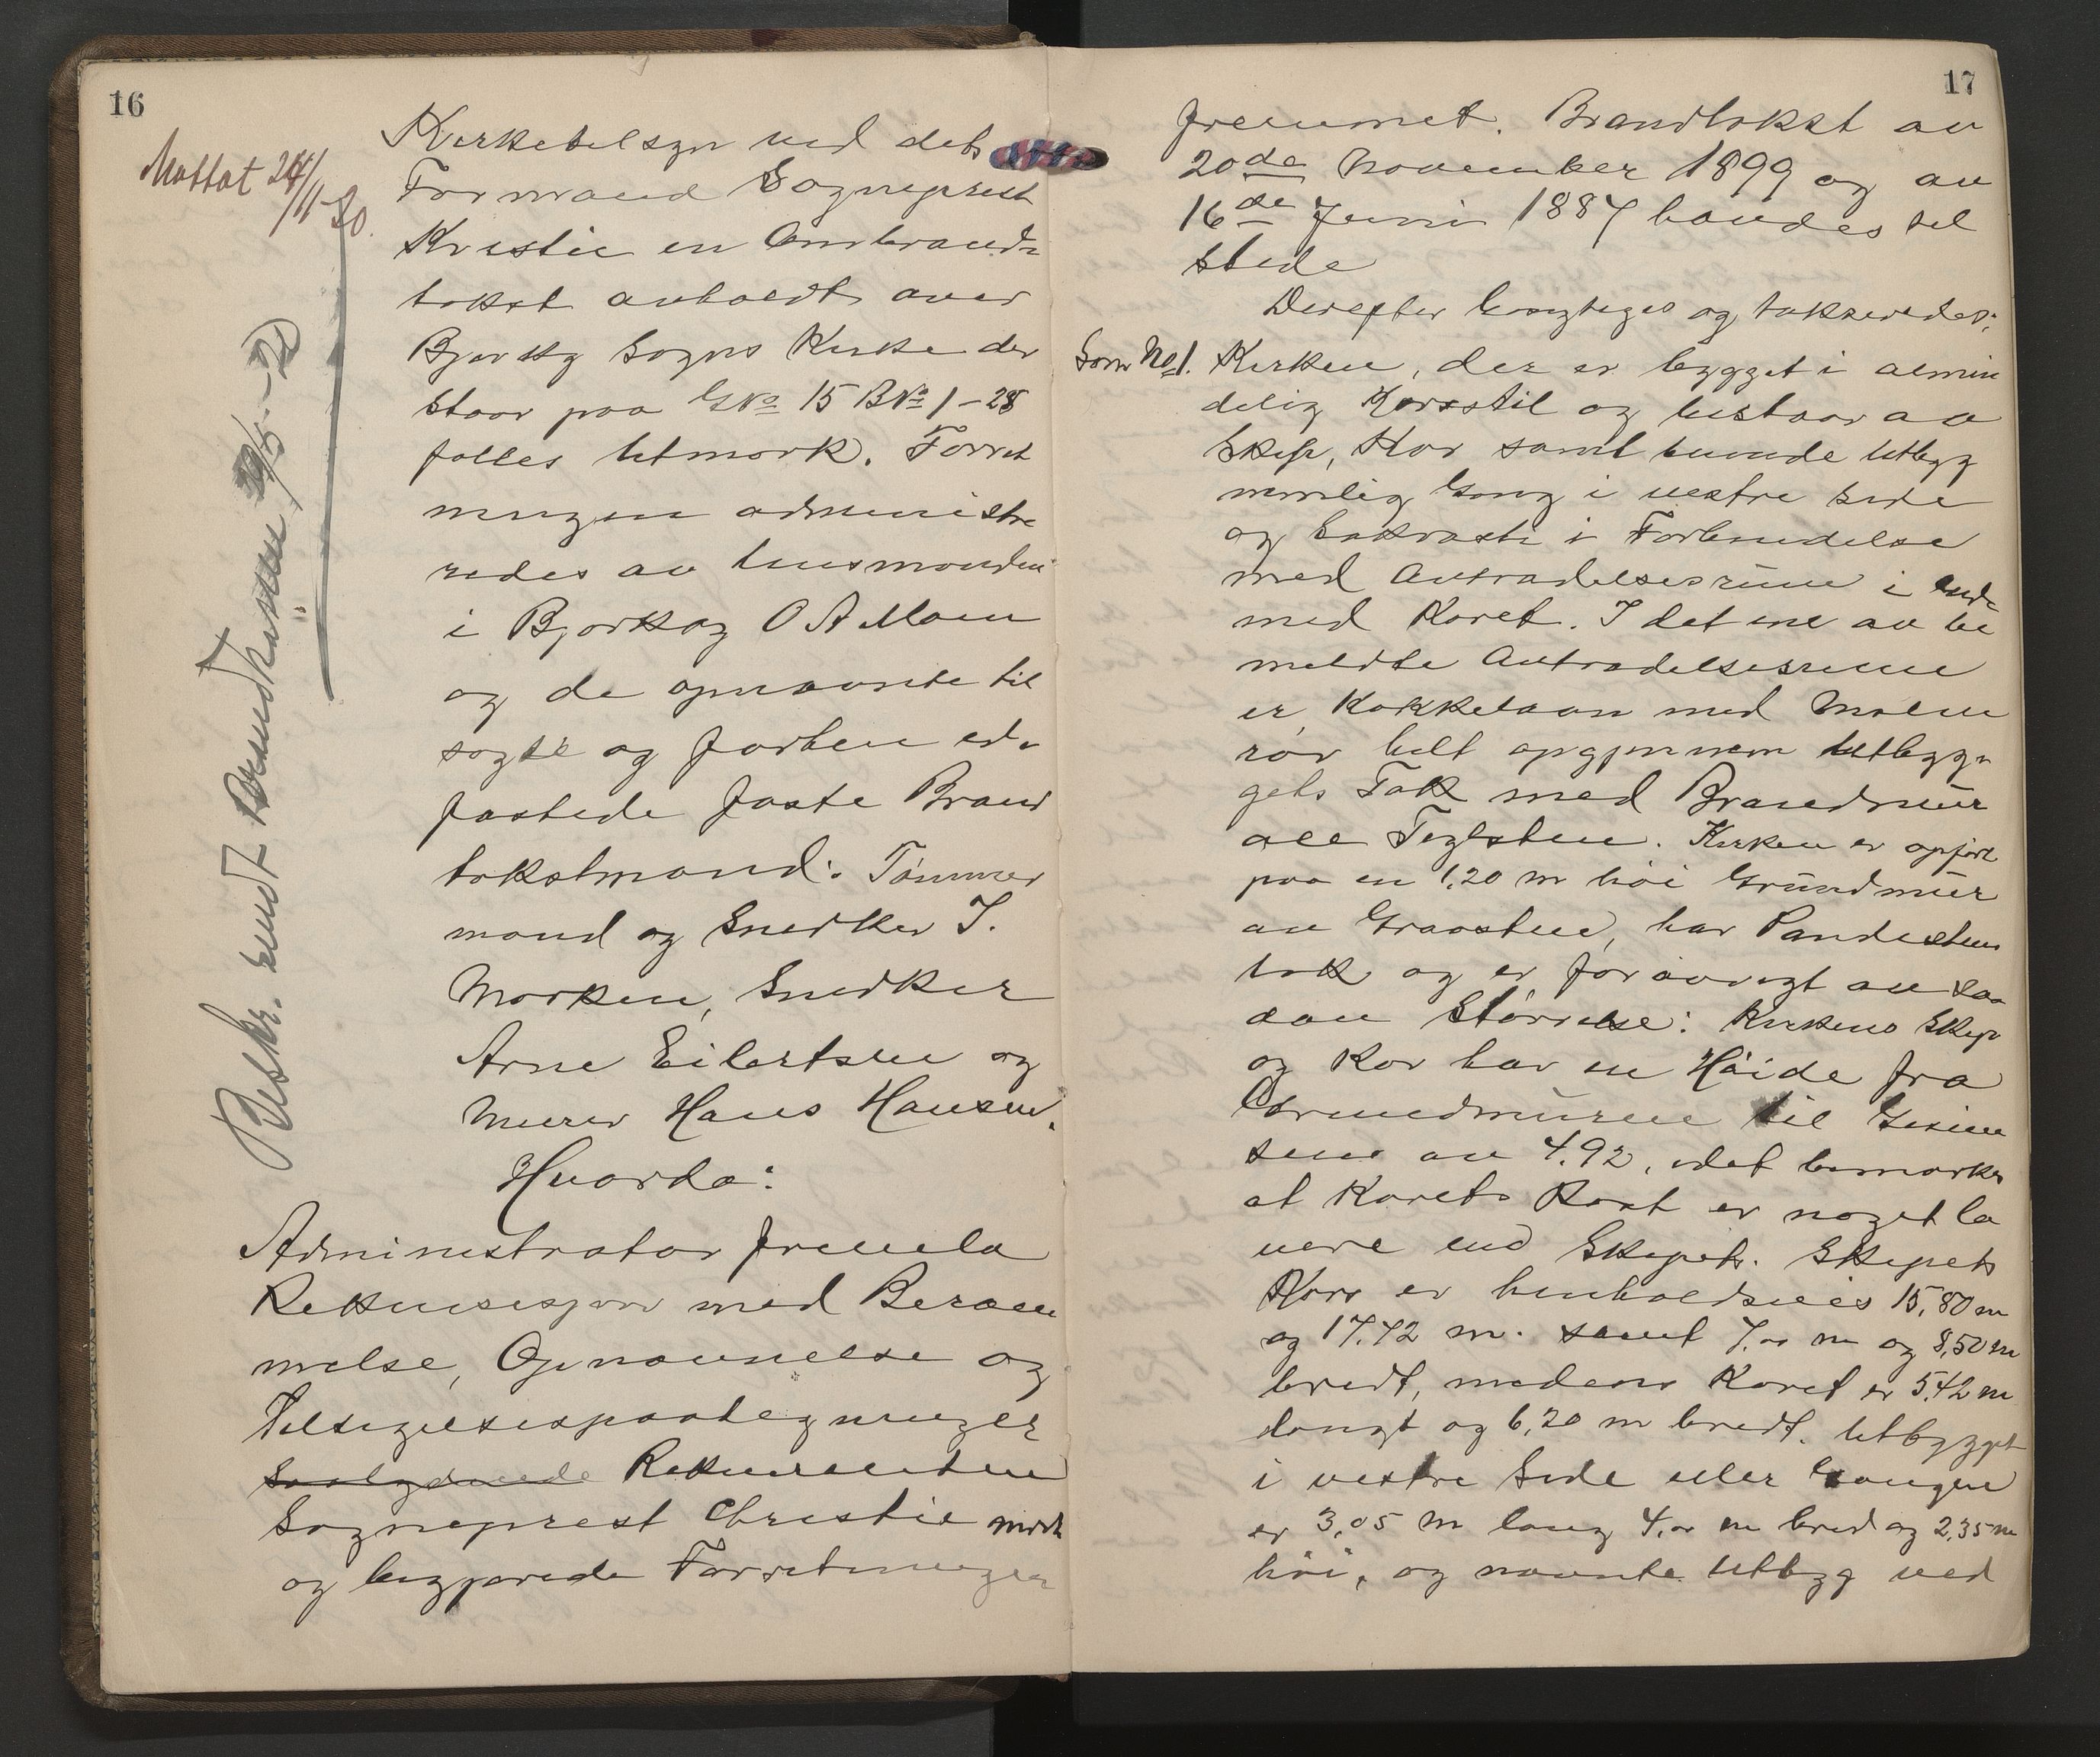 16
Mottat 24/11-20.
Beskr. sendt Brandkassen 29/5.-21
Kirketilsyn ved dets
Formand Sogneprest
Kristie en Ombrand-
takst avholdt over
Bjorkg Sogns Kirke der
staar paa GNo 15 BNo 1-28
falles Utmork. Forret
ningen administre
redes av Lensmanden
i Bjorkag O A Moen
og de opnavnte til
sagte og forhen ed-
fastede faste Brand
takstmænd: Tømmer
mand og Snedker I.
Morken, Snedker
Arne Eilertsen og
Murer Hans Hansen.
Hvorda:
Administrator fremla
Rekvisisjon med Beram
melse, Opnavnelse og
Tilsigelsespaategninger
Rekvirenten
Sogneprest Christie møtte
og begjærede Forretningen
17
fremmet. Brandtakst av
20de November 1899 og av
16de Juni 1887 havdes til
stede
Derefter besigtiges og takseredes:
Som No 1. Kirken, der er bygget i almin
delig Korsstil og bestaar av
Skip, Kor samt tvende Utbygg
nemlig Gang i vestre Side
og Sakristi i Forbindelse
med Avtrædelsesrum i ende
med Koret. I det ene av be
meldte Avtrædelsesrum
er Kakkelovn med Malm
rør helt opgjennem Utbyg-
gets Tak med Brandmur
all Teglsten. Kirken er opført
paa en 1,20 m høi Grundmur
av Graasten, har Pandestens
tak og er forøvrigt av saa
dan Størrelse: Kirkens Skip
og Kor har en Høide fra
Grundmuren til Gesim
sens av 4.92, idet bemærkes
at Korets Røst er noget la
vere end Skipets. Skipets
Kors er henholdsvis 15,80 m
og 17.72 m. samt 7,00 m og 8,50 m
bredt, medens Koret er 5,42 m
langt og 6,20 m bredt. Utbygget
i vestre Side eller Gangen
er 3,05 m lang 4,00 m bred og 2,35 m
høi, og nævnte Utbyg ved